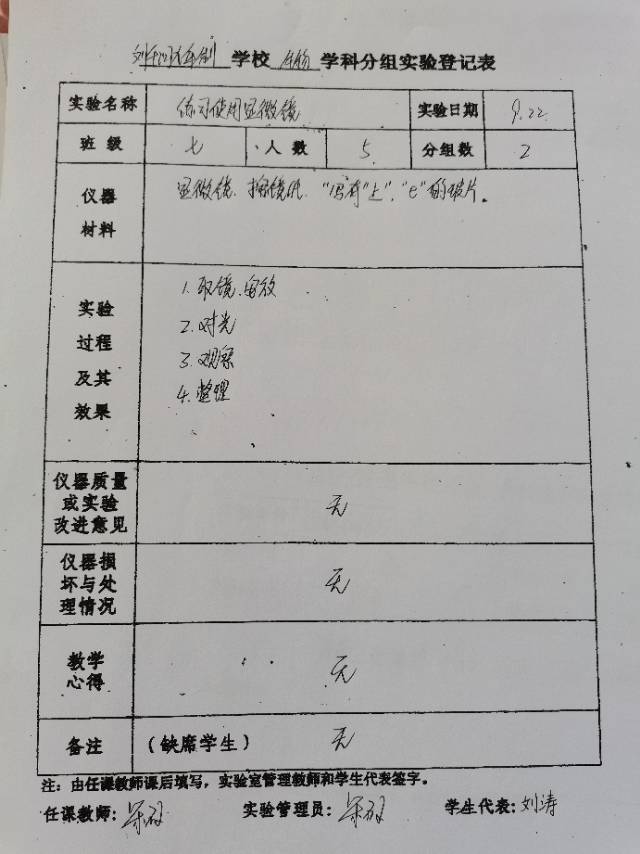 学校 生物 学科分组实验登记表
实验名称 练习使用显微镜 实验日期 9.22
班级 七 人数 5 分组数 2
仪器
材料
显微镜、擦镜纸、"写有"上"、"e"的玻片。
实验
过程
及其
效果
1.取镜、安放
2.对光
3.观察
4.整理
仪器质量
或实验
改进意见
无
仪器损
坏与处
理情况
无
教学
心得
无
备注 (缺席学生) 无
注：由任课教师课后填写，实验室管理教师和学生代表签字。
任课教师: 实验管理员: 学生代表: 刘涛